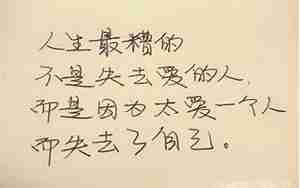 人生最糟的
不是失去爱的人，
而是因为太爱一个人
而失去了自己。